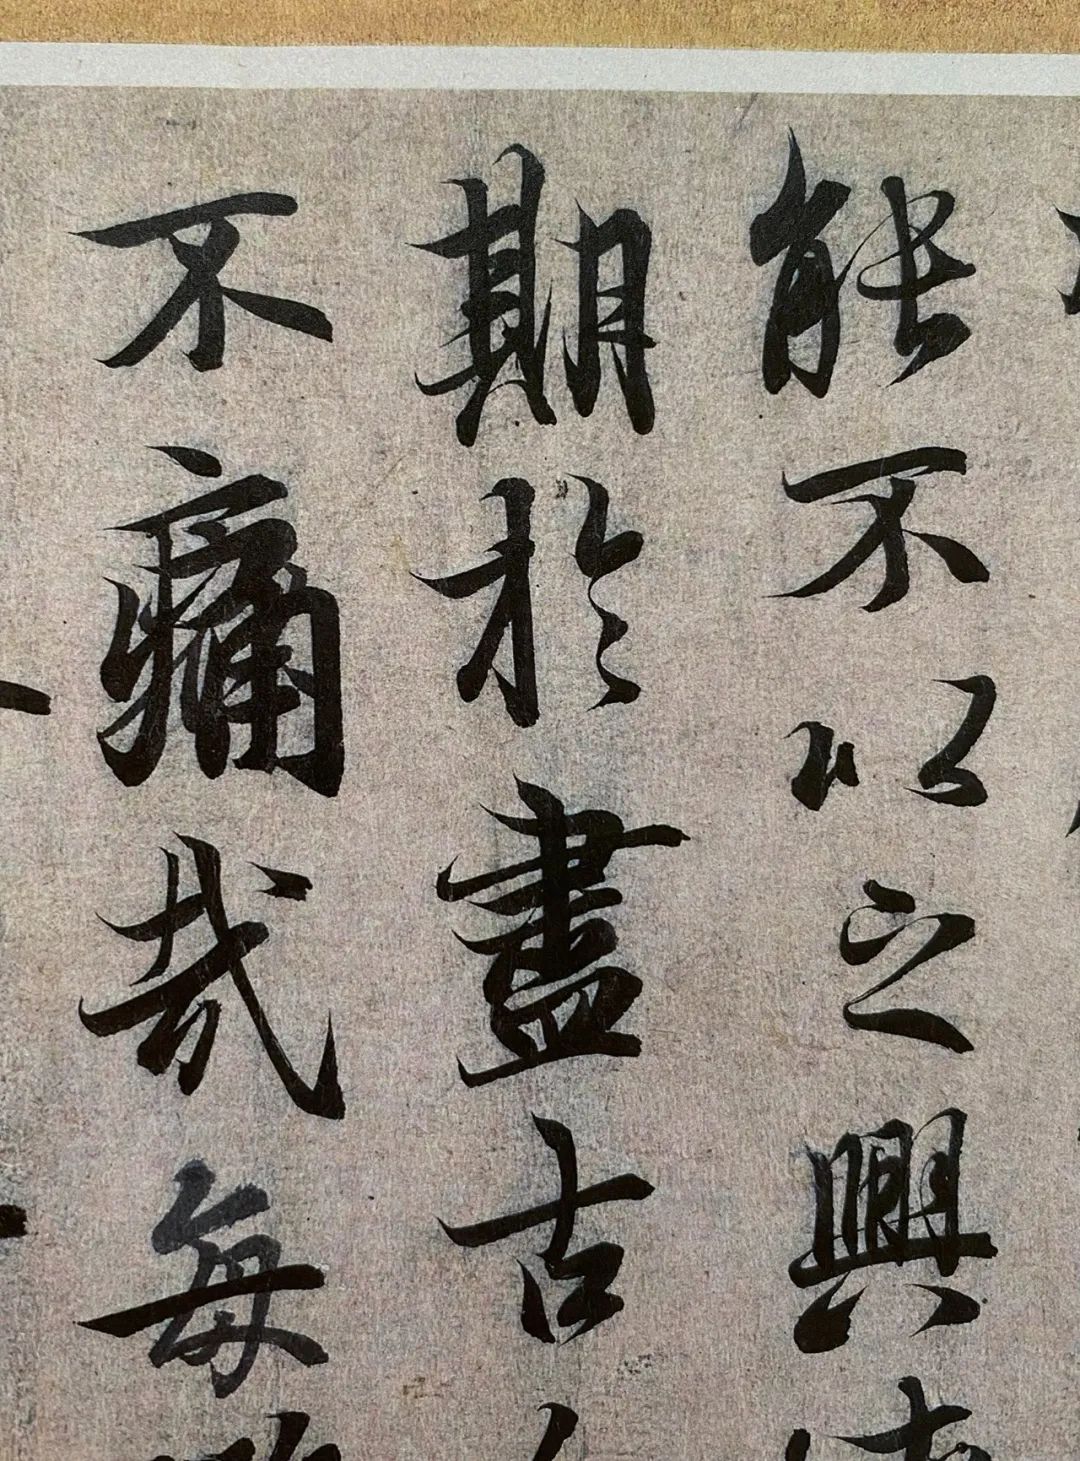 能不以之興
期於盡古
不痛哉每